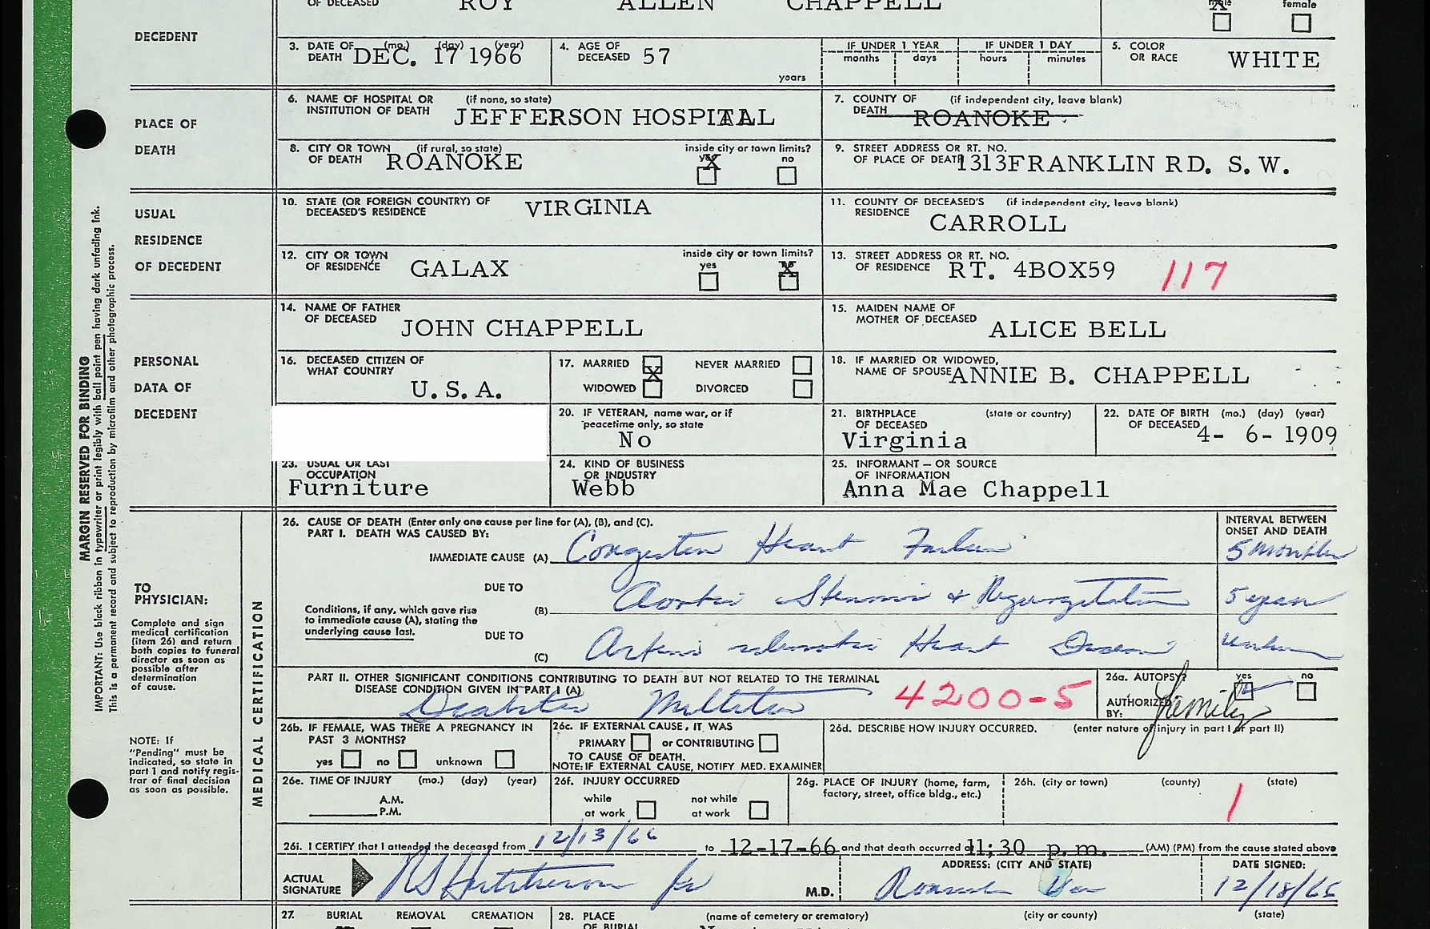 OF DECEASED ROY ALLEN CHAPPELL male X female
DECEDENT
3. DATE OF DEATH (mo.) (day) (year) DEC. 17 1966 4. AGE OF DECEASED 57 years IF UNDER 1 YEAR months days IF UNDER 1 DAY hours minutes 5. COLOR OR RACE WHITE
PLACE OF DEATH
6. NAME OF HOSPITAL OR INSTITUTION OF DEATH (if none, so state) JEFFERSON HOSPITAL 7. COUNTY OF DEATH (if independent city, leave blank) ROANOKE
8. CITY OR TOWN OF DEATH (if rural, so state) ROANOKE inside city or town limits? yes X no 9. STREET ADDRESS OR RT. NO. OF PLACE OF DEATH 1313FRANKLIN RD. S. W.
USUAL RESIDENCE OF DECEDENT
10. STATE (OR FOREIGN COUNTRY) OF DECEASED'S RESIDENCE VIRGINIA 11. COUNTY OF DECEASED'S RESIDENCE (if independent city, leave blank) CARROLL
12. CITY OR TOWN OF RESIDENCE GALAX inside city or town limits? yes X 13. STREET ADDRESS OR RT. NO. OF RESIDENCE RT. 4BOX59 117
PERSONAL DATA OF DECEDENT
14. NAME OF FATHER OF DECEASED JOHN CHAPPELL 15. MAIDEN NAME OF MOTHER OF DECEASED ALICE BELL
16. DECEASED CITIZEN OF WHAT COUNTRY U.S.A. 17. MARRIED X NEVER MARRIED WIDOWED DIVORCED 18. IF MARRIED OR WIDOWED, NAME OF SPOUSE ANNIE B. CHAPPELL
20. IF VETERAN, name war, or if peacetime only, so state No 21. BIRTHPLACE OF DECEASED (state or country) Virginia 22. DATE OF BIRTH OF DECEASED (mo.) (day) (year) 4- 6- 1909
23. USUAL OR LAST OCCUPATION Furniture 24. KIND OF BUSINESS OR INDUSTRY Webb 25. INFORMANT — OR SOURCE OF INFORMATION Anna Mae Chappell
MARGIN RESERVED FOR BINDING
IMPORTANT: Use black ribbon in typewriter or print legibly with ball point pen having dark unfading ink.
This is a permanent record and subject to reproduction by microfilm and other photographic process.
TO PHYSICIAN:
Complete and sign
medical certification
(item 26) and return
both copies to funeral
director as soon as
possible after
determination
of cause.
NOTE: If
"Pending" must be
indicated, so state in
part 1 and notify regis-
trar of final decision
as soon as possible.
MEDICAL CERTIFICATION
26. CAUSE OF DEATH (Enter only one cause per line for (A), (B), and (C). INTERVAL BETWEEN ONSET AND DEATH
PART I. DEATH WAS CAUSED BY:
IMMEDIATE CAUSE (A) Congestive Heart Failure 5 months
DUE TO
Conditions, if any, which gave rise to immediate cause (A), stating the underlying cause last.
(B) Aortic Stenosis & Regurgitation 5 years
DUE TO
(C) Arteriosclerotic Heart Disease unknown
PART II. OTHER SIGNIFICANT CONDITIONS CONTRIBUTING TO DEATH BUT NOT RELATED TO THE TERMINAL DISEASE CONDITION GIVEN IN PART I (A)
Diabetes Mellitus 4200-5 26a. AUTOPSY? yes no AUTHORIZED BY: Family
26b. IF FEMALE, WAS THERE A PREGNANCY IN PAST 3 MONTHS? yes no unknown
26c. IF EXTERNAL CAUSE, IT WAS PRIMARY or CONTRIBUTING TO CAUSE OF DEATH.
NOTE: IF EXTERNAL CAUSE, NOTIFY MED. EXAMINER
26d. DESCRIBE HOW INJURY OCCURRED. (enter nature of injury in part I or part II)
26e. TIME OF INJURY (mo.) (day) (year) A.M. P.M. 26f. INJURY OCCURRED while at work not while at work 26g. PLACE OF INJURY (home, farm, factory, street, office bldg., etc.) 26h. (city or town) (county) (state) 1
26i. I CERTIFY that I attended the deceased from 12/13/66 to 12-17-66 and that death occurred 11;30 p.m. (AM) (PM) from the cause stated above
ACTUAL SIGNATURE RS Hutcheson Jr M.D. ADDRESS: (CITY AND STATE) Roanoke Va DATE SIGNED: 12/18/66
27. BURIAL REMOVAL CREMATION 28. PLACE OF BURIAL (name of cemetery or crematory) (city or county) (state)